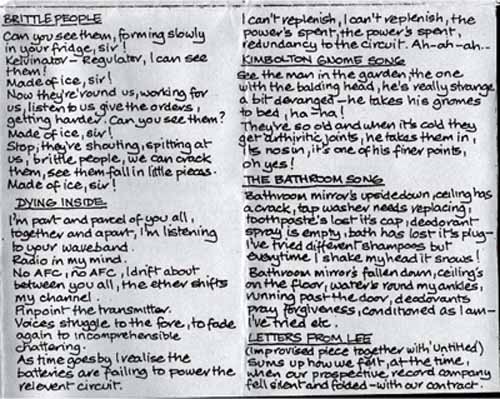 BRITTLE PEOPLE
Can you see them, forming slowly
in your fridge, sir!
Kelvinator-Regulator, I can see
them!
Made of ice, sir!
Now they're round us, working for
us, listen to us give the orders,
getting harder. Can you see them?
Made of ice, sir!
Stop; they're shouting, spitting at
us, brittle people, we can crack
them, see them fall in little pieces.
Made of ice, sir!
DYING INSIDE.
I'm part and parcel of you all,
together and apart, I'm listening
to your waveband.
Radio in my mind.
No AFC, no AFC, I drift about
between you all, the ether shifts
my channel.
Pinpoint the transmitter.
Voices struggle to the fore, to fade
again to incomprehensible
chattering.
As time goes by I realise the
batteries are failing to power the
relevent circuit.
I can't replenish, I can't replenish, the
power's spent, the power's spent,
redundancy to the circuit. Ah-ah-ah...
KIMBOLTON GNOME SONG
See the man in the garden, the one
with the balding head, he's really strange
a bit deranged-he takes his gnomes
to bed, ha-ha!
They're so old and when it's cold they
get arthiritic joints, he takes them in,
its no sin, it's one of his finer points,
oh yes!
THE BATHROOM SONG
Bathroom mirror's upsidedown, ceiling has
a crack, tap washer needs replacing,
toothpaste's lost it's cap, deodorant
spray is empty, bath has lost it's plug-
I've tried different shampoos but
everytime I shake my head it snows!
Bathroom mirror's fallen down, ceiling's
on the floor, water's round my ankles,
running past the door, deodorants
pray forgiveness, conditioned as I am-
I've tried etc.
LETTERS FROM LEE
(improvised piece together with, 'untitled')
sums up how we felt, at the time,
when our prospective record company
fell silent and folded-with our contract.